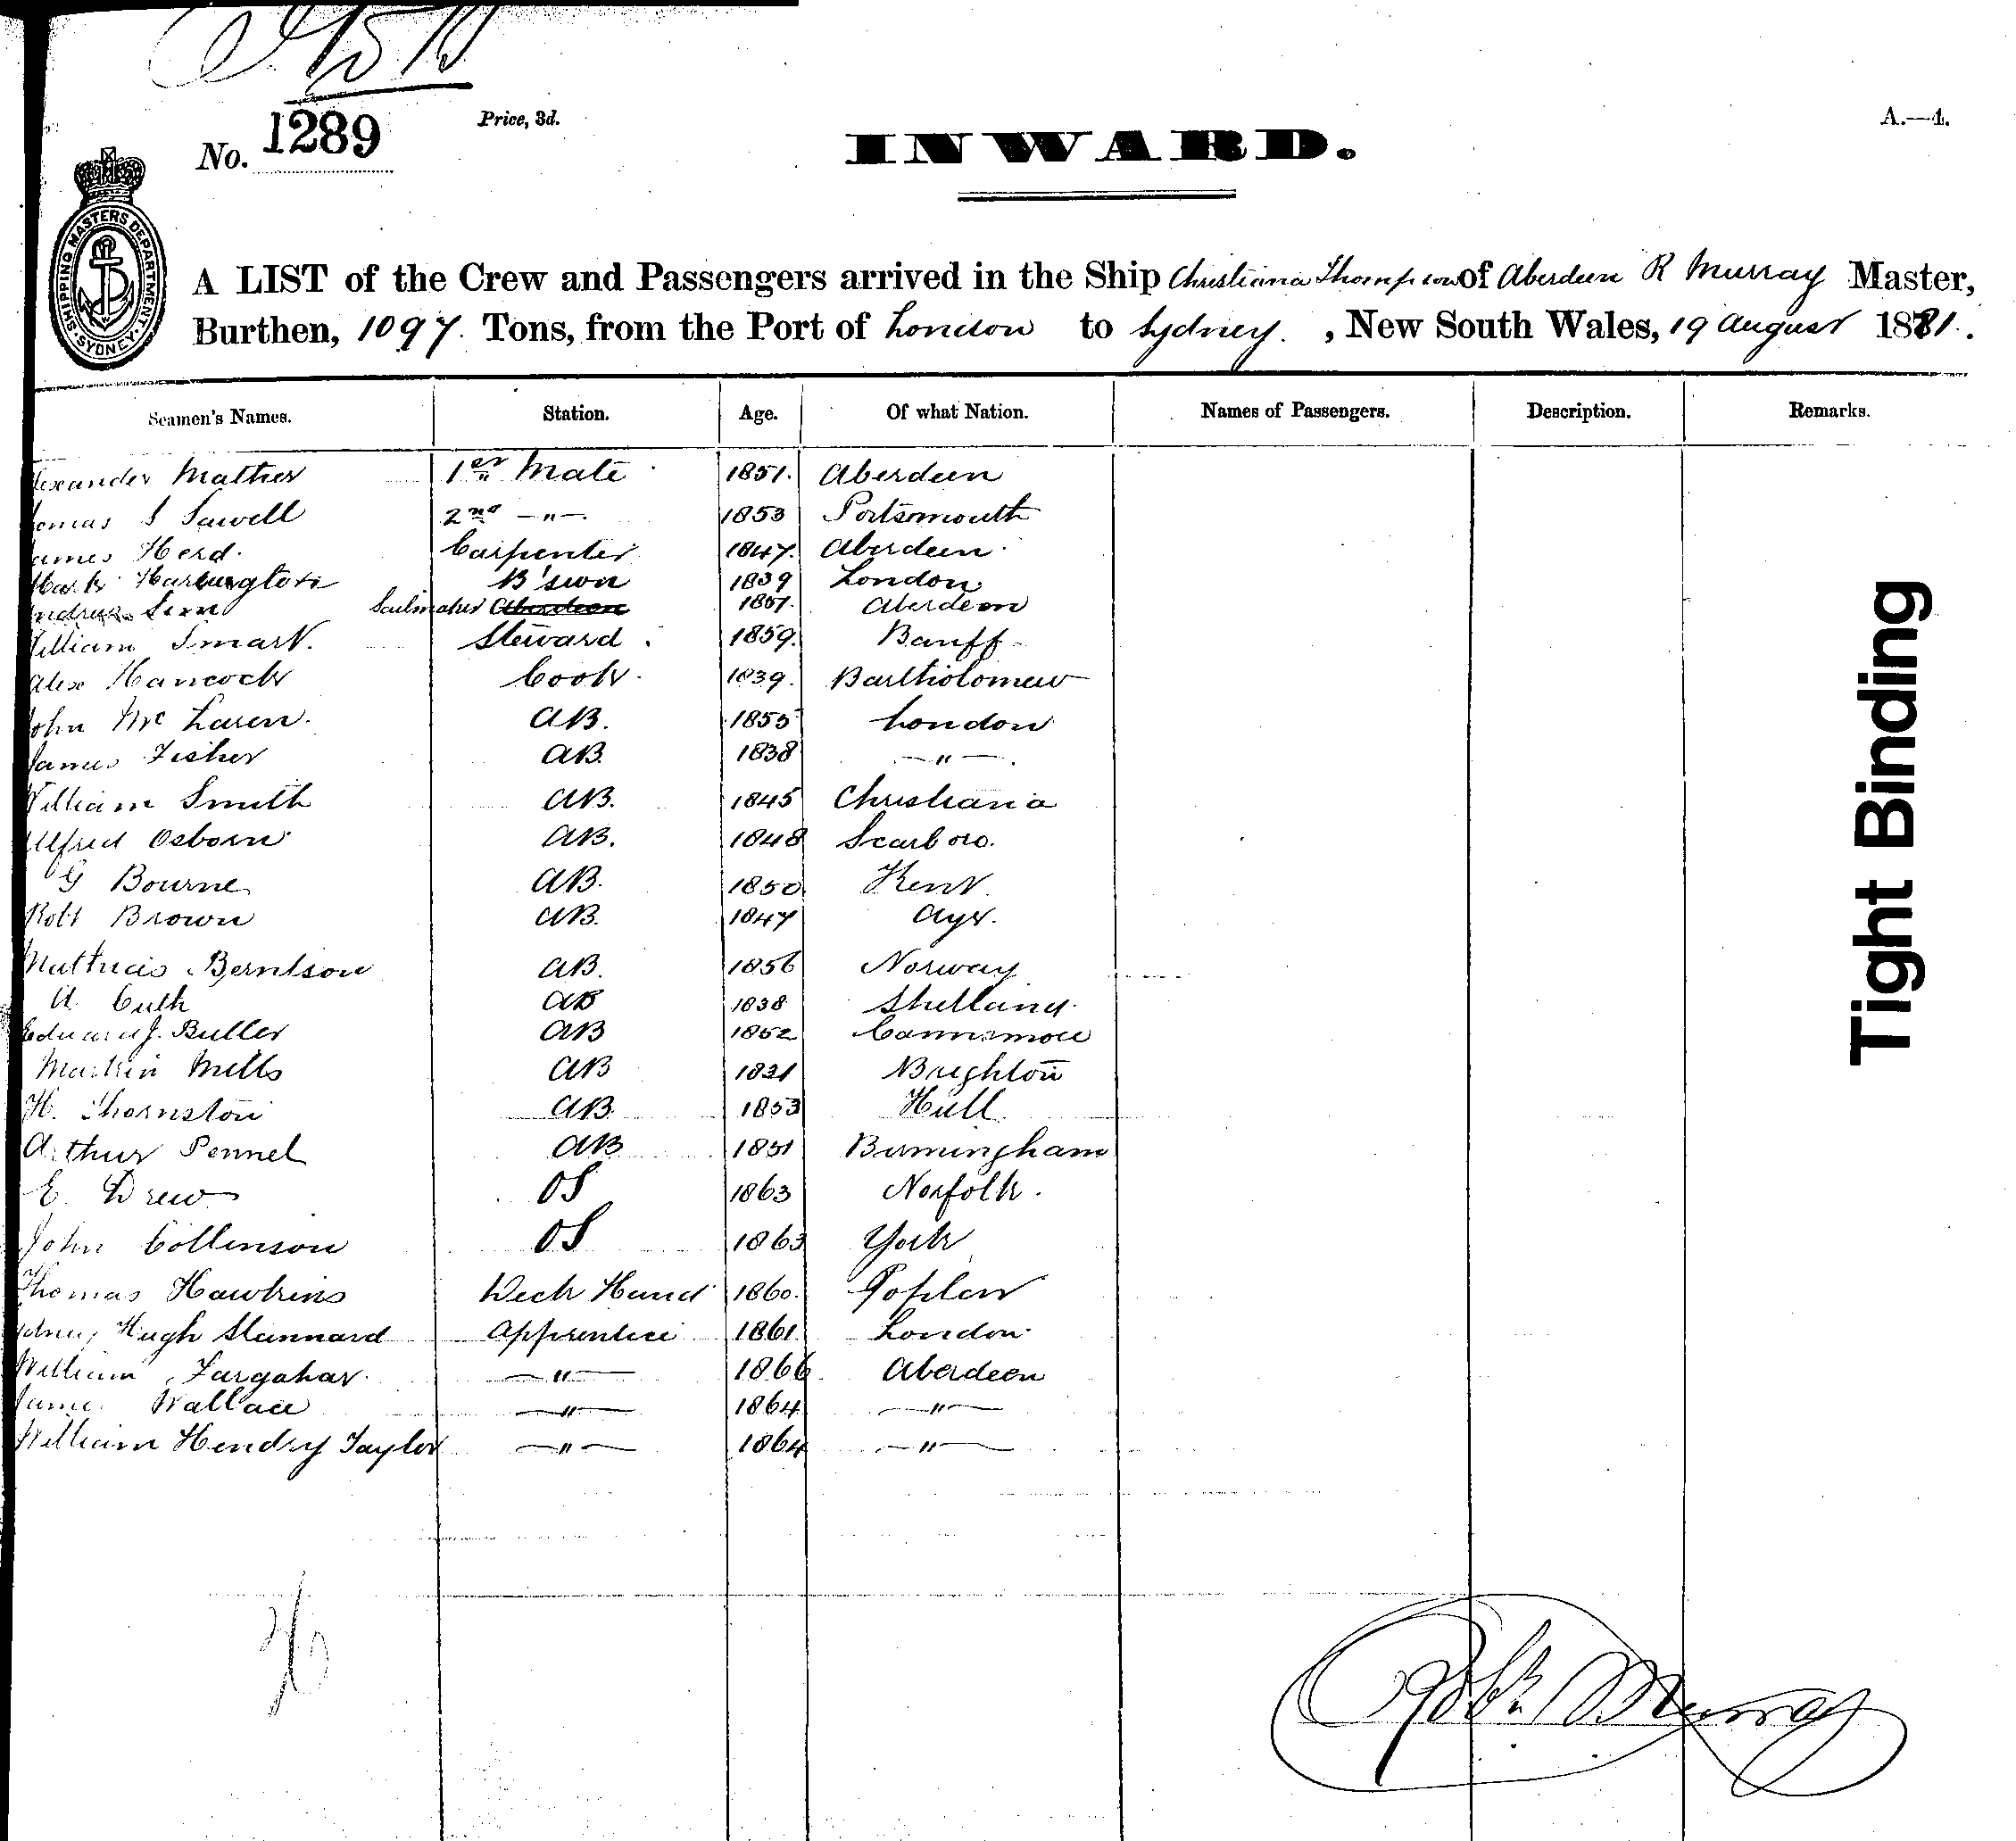 No. 1289
Price, 3d.
INWARD.
A.—4.
SHIPPING MASTERS DEPARTMENT. SYDNEY.
A LIST of the Crew and Passengers arrived in the Ship Christiana Thompson of Aberdeen R Murray Master,
Burthen, 1097. Tons, from the Port of London to Sydney. , New South Wales, 19 August 1881.
Seamen's Names. Station. Age. Of what Nation. Names of Passengers. Description. Remarks.
lexander Mather 1er Mate 1851. Aberdeen
homas S Sawell 2nd —"— 1853 Portsmouth
James Herd. Carpenter 1847. Aberdeen.
Mark Harrington B'swn 1839 London
Sailmaker Aberdeen 1857. Aberdeen
William Smart. Steward 1859. Banff
Alex Hancock Cook. 1839. Bartholomew
John Mc Laren. AB. 1855 London
James Fisher AB. 1838 —"—
William Smith AB. 1845 Christiania
Alfred Osborn AB. 1848 Scarboro.
G Bourne AB. 1850 Kent.
Robt Brown AB. 1847 Ayr.
Mathias Berntson AB. 1856 Norway
A. AB 1838 Shetland.
Edward J. Butler AB 1852
Martin Mills AB 1831 Brighton
H. Thornston AB. 1853 Hull.
Arthur Pennel AB 1851 Birmingham
E. Drew OS 1863 Norfolk.
John Collinson OS 1863 York
Thomas Hawkins Deck Hand 1860. Poplar
ydney Hugh Stannard Apprentice 1861. London.
William Fargahar. —"— 1866. Aberdeen
James Wallace —"— 1864 —"—
William Hendry Taylor —"— 1864 —"—
Robt. Murray
Tight Binding